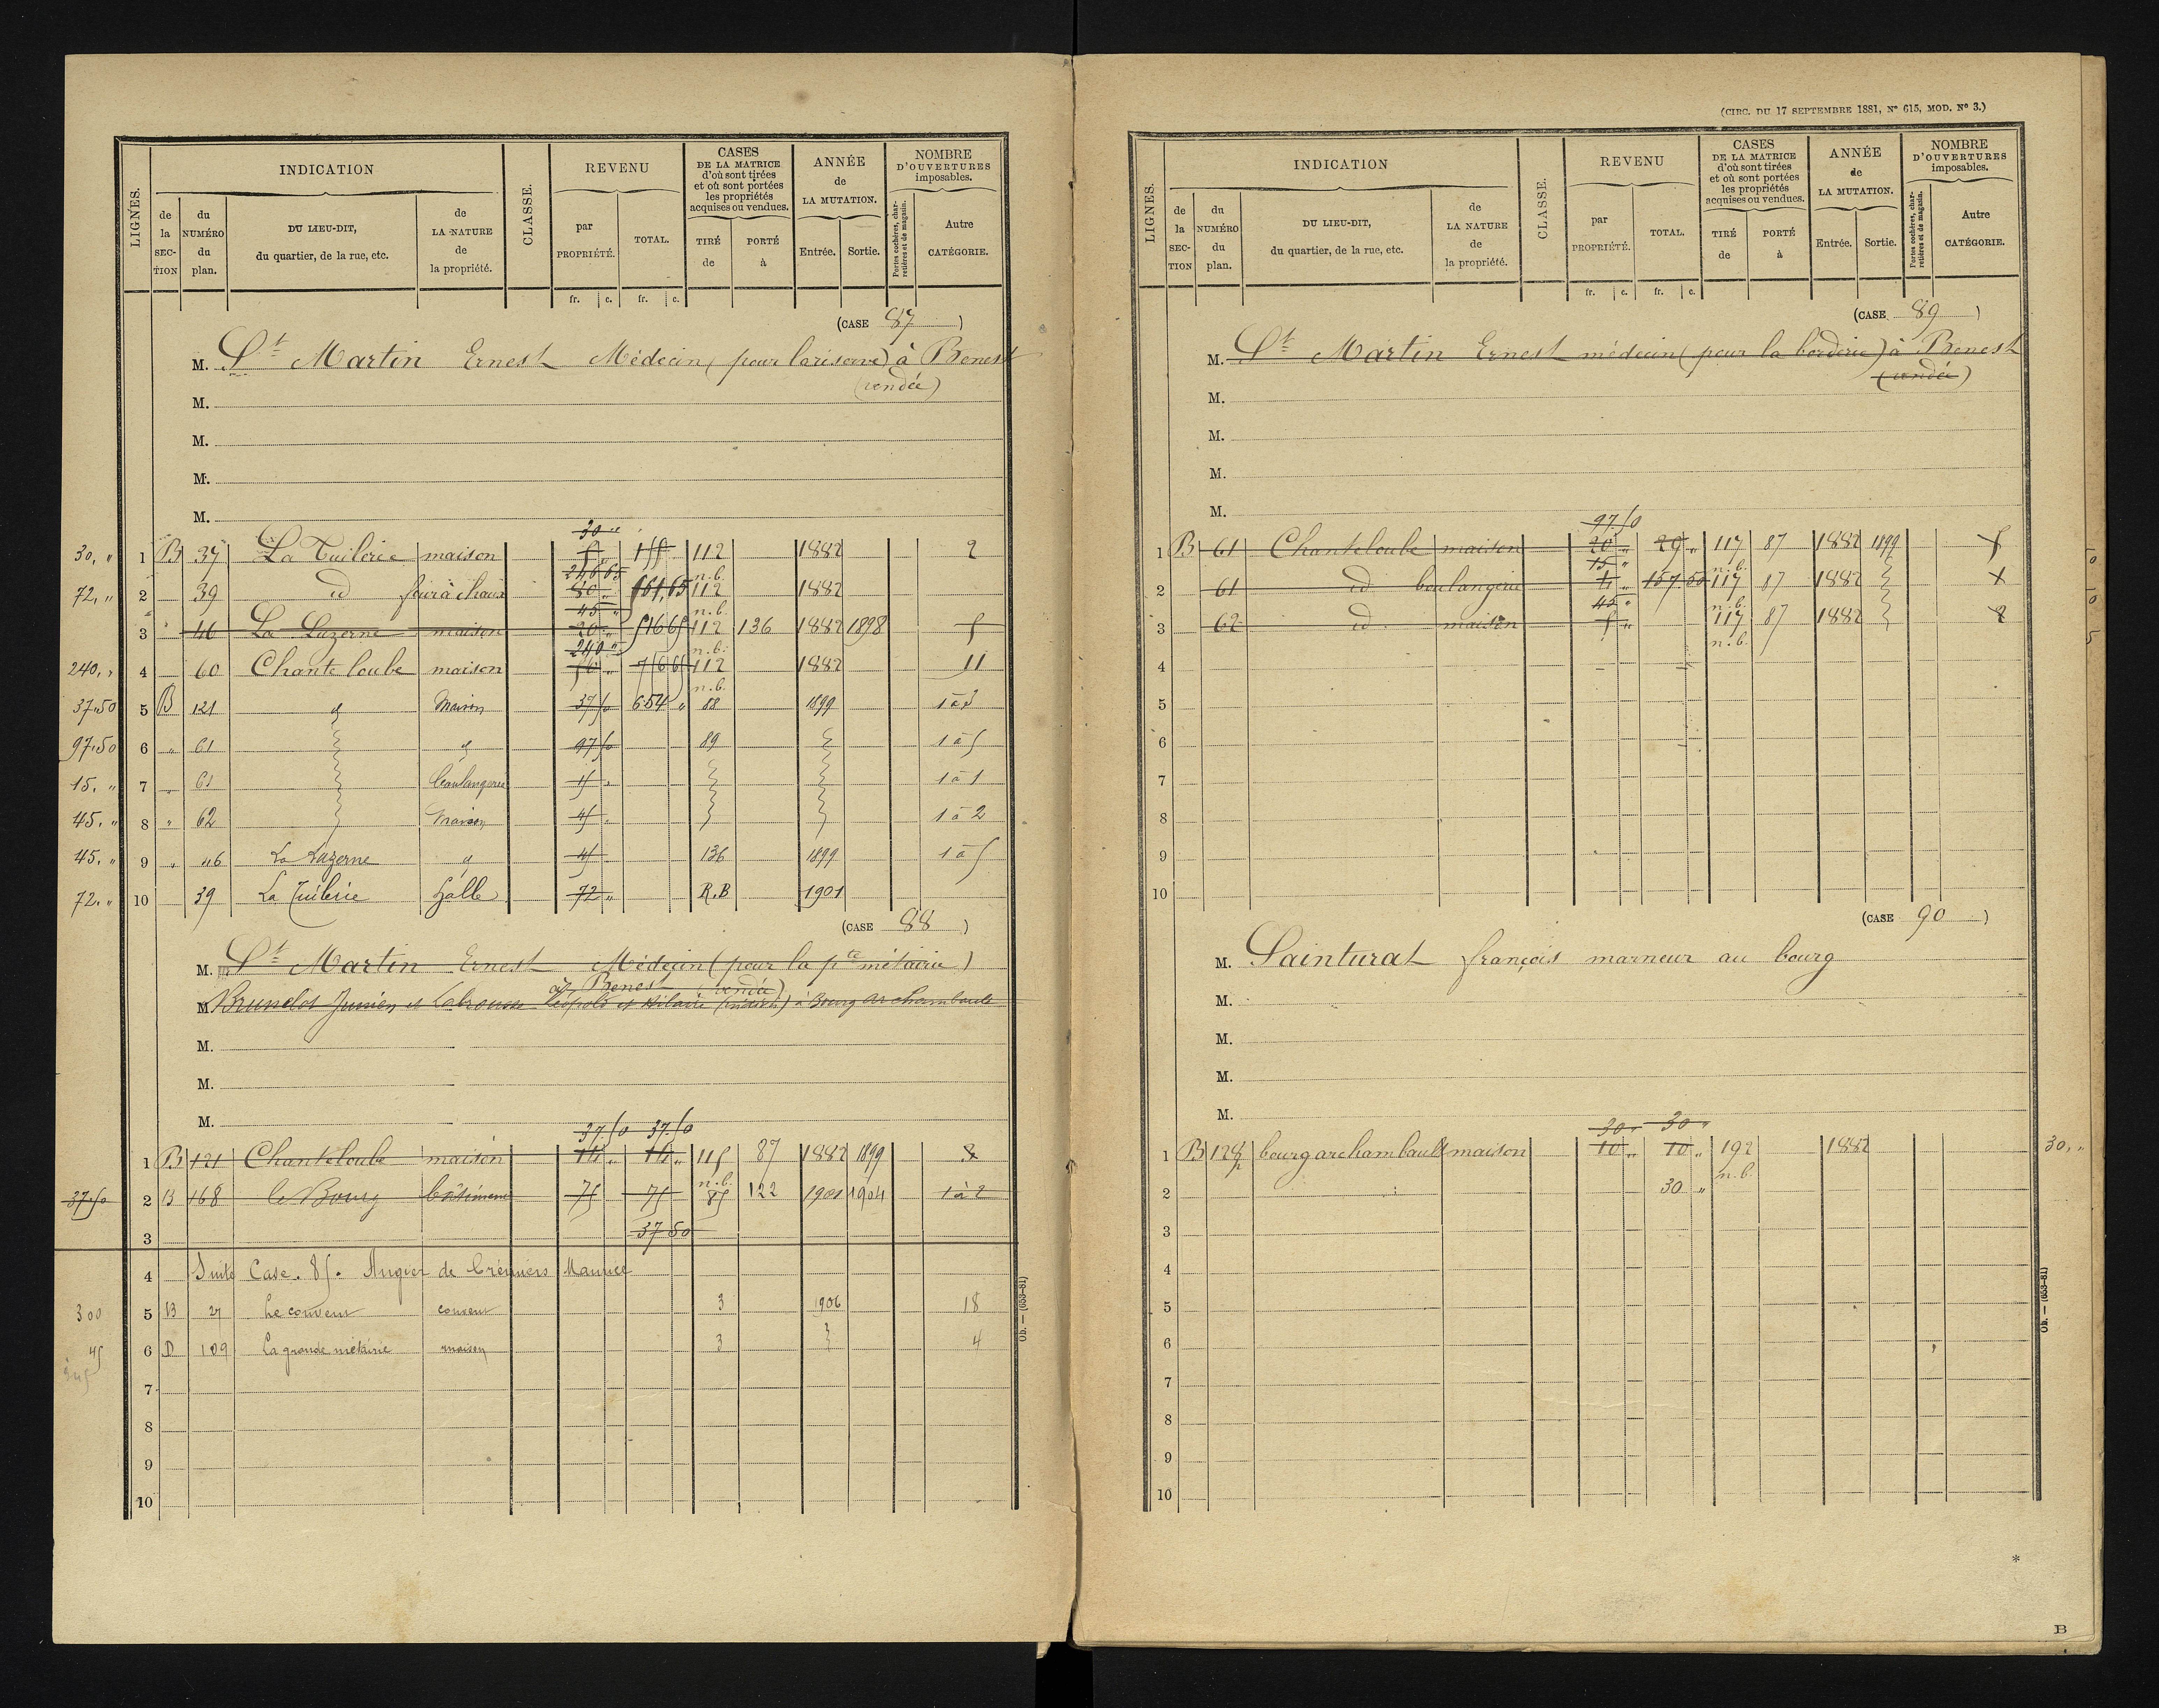 LIGNES.
INDICATION
de la SECTION
du NUMÉRO du plan.
DU LIEU-DIT, du quartier, de la rue, etc.
de LA NATURE de la propriété.
CLASSE.
REVENU
par PROPRIÉTÉ.
TOTAL.
fr. c. fr. c.
CASES DE LA MATRICE d'où sont tirées et où sont portées les propriétés acquises ou vendues.
TIRÉ de
PORTÉ à
ANNÉE de LA MUTATION.
Entrée. Sortie.
NOMBRE D'OUVERTURES imposables.
Portes cochères, charretières et de magasin.
Autre CATÉGORIE.
(CASE 87)
M. St Martin Ernest Médecin (pour la réserve) à Benest
(vendée)
M.
M.
M.
M.
30 "
30, " 1 B 37 La Tuilerie maison 112 1882 2
246 65 n.b.
72, " 2 39 id four à chaux 80 " 161,65 112 1882
45 " n.b.
3 46 La Luzerne maison 20 " 112 136 1882 1898 5
240 " n.b.
240, " 4 60 Chanteloube maison 112 1882 11
n.b.
37,50 5 B 121 Maison 37 50 654 " 88 1899 1 à 3
97,50 6 " 61 97 50 89 1 à 5
15, " 7 " 61 boulangerie 15 " 1 à 1
45, " 8 " 62 Maison 45 " 1 à 2
45, " 9 " 46 La Luzerne 45 136 1899 1 à 5
72, " 10 39 La Tuilerie halle 72 " R.B 1901
(CASE 88)
M. St Martin Ernest Médecin (pour la pte métairie)
à Benest (vendée)
M. Brunelot Junien et Labrousse Léopold et Hilaire (indivis) à Bourg Archambault
M.
M.
M.
37.50 37.50
1 B 121 Chanteloube maison 14 " 14 " 115 87 1882 1899 3
n.b.
37.50 2 B 168 le Bourg bâtiment 75 75 85 122 1901 1904 1 à 2
3 37 50
4 Suite Case. 85. Augier de Crémiers Maurice
300 5 B 27 Le couvent couvent 3 1906 18
45 6 D 109 La grande métairie maison 3 4
345
7
8
9
10
Ob. — (653-81)
(CIRC. DU 17 SEPTEMBRE 1881, N° 615, MOD. N° 3.)
LIGNES.
INDICATION
de la SECTION
du NUMÉRO du plan.
DU LIEU-DIT, du quartier, de la rue, etc.
de LA NATURE de la propriété.
CLASSE.
REVENU
par PROPRIÉTÉ.
TOTAL.
fr. c. fr. c.
CASES DE LA MATRICE d'où sont tirées et où sont portées les propriétés acquises ou vendues.
TIRÉ de
PORTÉ à
ANNÉE de LA MUTATION.
Entrée. Sortie.
NOMBRE D'OUVERTURES imposables.
Portes cochères, charretières et de magasin.
Autre CATÉGORIE.
(CASE 89)
M. St Martin Ernest médecin (pour la borderie) à Benest
(vendée)
M.
M.
M.
M.
97.50
1 B 61 Chanteloube maison 20 " 29 " 117 87 1882 1899 5
15 " n.b.
2 61 id boulangerie 4 " 157 50 117 87 1882 1
45 " n.b.
3 62 id. maison 5 " 117 87 1882 2
n.b.
4
5
6
7
8
9
10
(CASE 90)
M. Sainturat françois marneur au bourg
M.
M.
M.
M.
30 " 30 "
1 B 128 bourgarchambault maison 10 " 10 " 192 1882 30, "
n.b.
2 30 "
3
4
5
6
7
8
9
10
Ob. — (653-81)
*
B